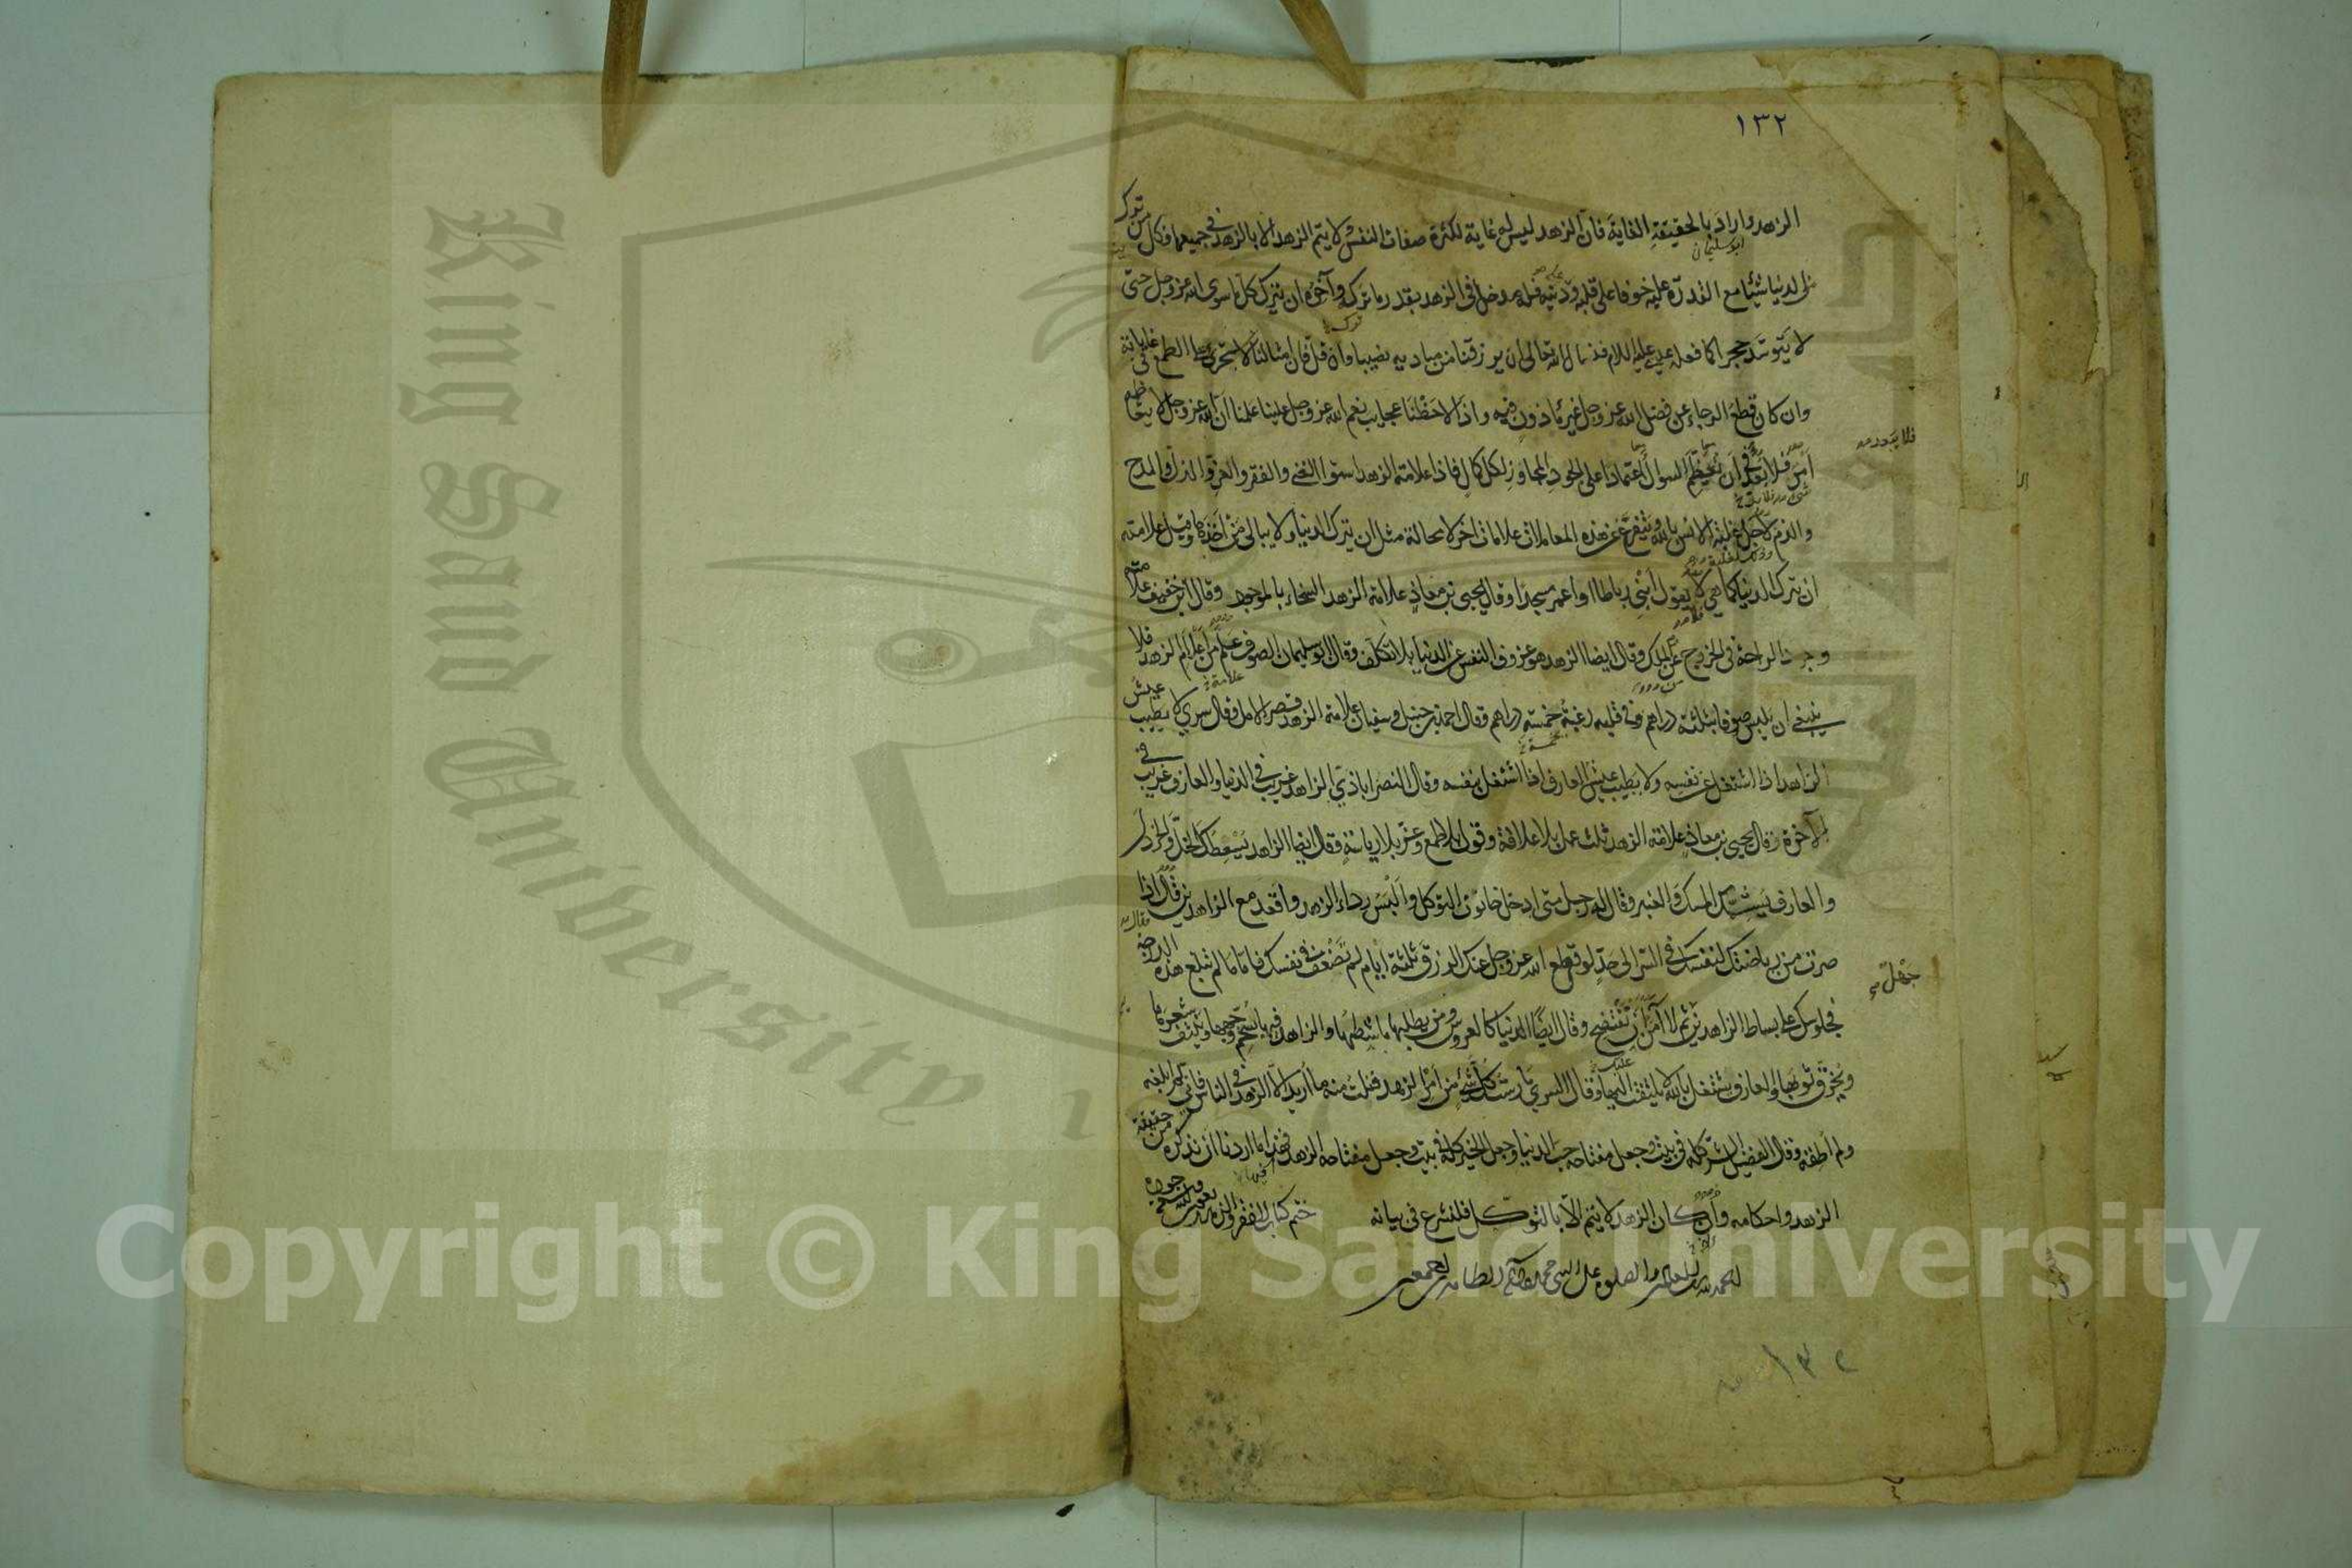 ١٣٢
الزهد واراد بالحقيقة الغاية فان الزهد ليس له غاية لكثرة صفات النفس لا يتم الزهد الا بالزهد في جميعها فكل من ترك
ابو سليمان
من الدنيا شيئا مع القدرة عليه خوفا على قلبه ودينه فله مدخل في الزهد بقدر ما تركه وآخره ان يترك كل ما سوى الله عز وجل حتى
لا يتوسد حجرا كما فعله عيسى عليه السلام فنسال الله تعالى ان يرزقنا من مباديه نصيبا وان قل فان امثالنا لا يستجرئ على الطمع في غاياته
وان كان قطع الرجاء عن فضل الله عز وجل غير مأذون فيه واذا لاحظنا عجايب نعم الله عز وجل علينا علمنا ان الله عز وجل لا يتعاظمه
فلا بعد
شئ فلا بعد في ان نعظم السوال اعتمادا على الجود المجاوز لكل كمال فاذا علامة الزهد استوا الغنى والفقر والعز والذل والمدح
والذم لاجل غلبة الانس بالله ويتفرع عن هذه العلامات علامات اخر لا محالة مثل ان يترك الدنيا ولا يبالي من اخذها وقيل علامته
ان يترك الدنيا كما هي لا يقول ابني رباطا او اعمر مسجدا وقال يحيى بن معاذ علامة الزهد السخاء بالموجود وقال ابن خفيف علامته
وجود الراحة في الخروج عن الملك وقال ايضا الزهد هو عزوف النفس عن الدنيا بلا تكلف وقال ابو سليمان الصوف علم من اعلام الزهد فلا
ينبغي ان يلبس صوفا بثلثة دراهم وفي قلبه رغبة خمسة دراهم وقال احمد بن حنبل وسفيان علامة الزهد قصر الامل وقال سري لا يطيب عيش
الزاهد اذا اشتغل عن نفسه ولا يطيب عيش العارف اذا اشتغل بنفسه وقال النصراباذي الزاهد غريب في الدنيا والعارف غريب في
الآخرة وقال يحيى بن معاذ علامة الزهد ثلث عمل بلا علاقة وقول بلا طمع وعز بلا رياسة وقال ايضا الزاهد يسعطك الخل والخردل
والعارف يشمك المسك والعنبر وقال له رجل متى ادخل حانوت التوكل وألبس رداء الزهد واقعد مع الزاهدين قال اذا
صرت من رياضتك لنفسك في السر الى حد لو قطع الله عز وجل عنك الرزق ثلثة ايام لم تضعف في نفسك فاما ما لم تبلغ هذه الدرجة
فجلوسك على بساط الزاهدين جهل ثم لا آمن ان تفتضح وقال ايضا الدنيا كالعروس ومن يطلبها ماشطتها والزاهد فيها يسخم وجهها وينتف شعرها
ويخرق ثوبها والعارف يشتغل بالله لا يلتفت اليها وقال السري مارست كل شئ من امر الزهد فنلت منه ما اريد الا الزهد في الناس فاني لم ابلغه
ولم اطقه وقال الفضيل الشر كله في بيت وجعل مفتاحه حب الدنيا وجعل الخير كله في بيت وجعل مفتاحه الزهد فهذا ما اردنا ان نذكره من حقيقة
الزهد واحكامه وان كان الزهد لا يتم الا بالتوكل فلنشرع في بيانه ختم كتاب الفقر والزهد
الحمد لله رب العالمين والصلوة على النبي محمد وآله الطاهرين اجمعين
King Saud University
Copyright © King Saud University